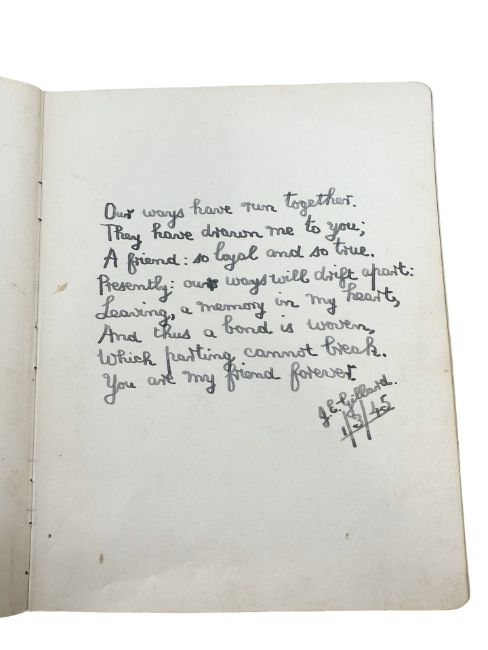 Our ways have run together.
They have drawn me to you;
A friend: so loyal and so true.
Presently; our ways will drift apart:
Leaving, a memory in my heart,
And thus a bond is woven,
Which parting cannot break.
You are my friend forever.
J.E. Gillard.
1/3/45